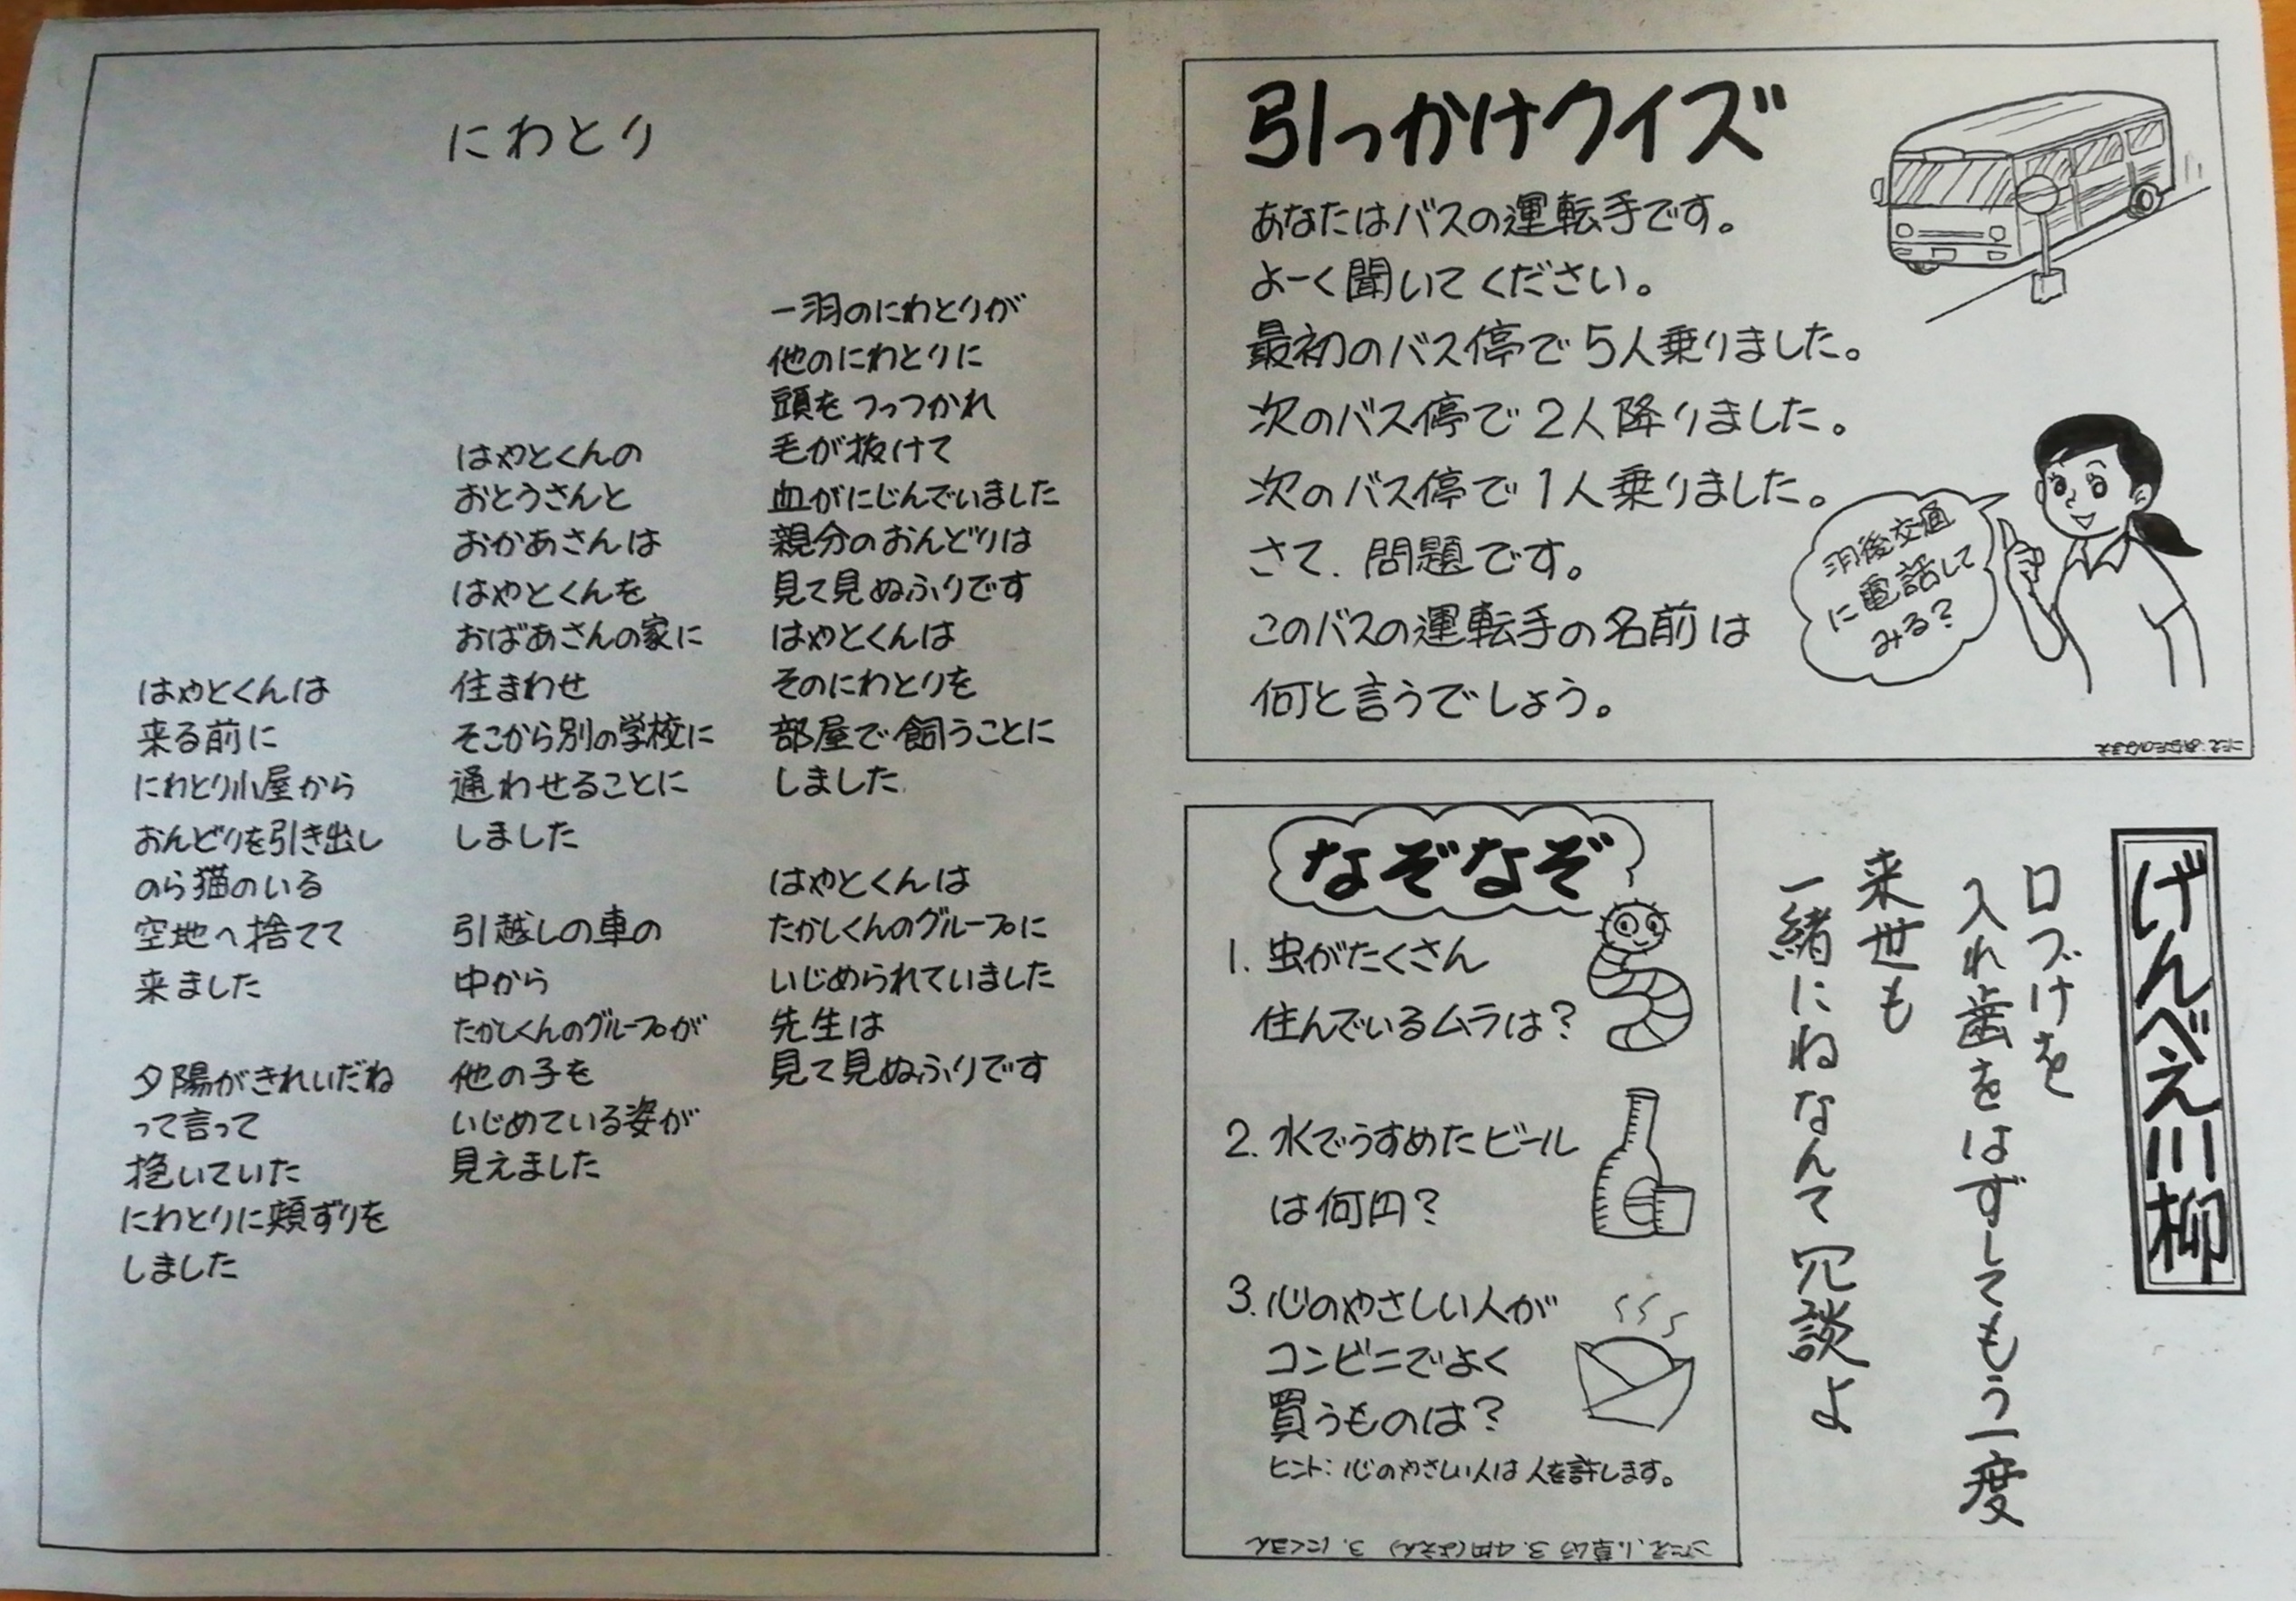 にわとり
一羽のにわとりが
他のにわとりに
頭をつっつかれ
毛が抜けて
血がにじんでいました
親分のおんどりは
見て見ぬふりです
はやとくんは
そのにわとりを
部屋で飼うことに
しました
はやとくんは
たかしくんのグループに
いじめられていました
先生は
見て見ぬふりです
はやとくんの
おとうさんと
おかあさんは
はやとくんを
おばあさんの家に
住まわせ
そこから別の学校に
通わせることに
しました
引越しの車の
中から
たかしくんのグループが
他の子を
いじめている姿が
見えました
はやとくんは
来る前に
にわとり小屋から
おんどりを引き出し
のら猫のいる
空地へ捨てて
来ました
夕陽がきれいだね
って言って
抱いていた
にわとりに頬ずりを
しました
引っかけクイズ
あなたはバスの運転手です。
よーく聞いてください。
最初のバス停で5人乗りました。
次のバス停で2人降りました。
次のバス停で1人乗りました。
さて、問題です。
このバスの運転手の名前は
何と言うでしょう。
羽後交通
に電話して
みる?
こたえ:あなたのなまえ
げんべえ川柳
口づけを
入れ歯をはずしてもう一度
来世も
一緒にねなんて冗談よ
なぞなぞ
1. 虫がたくさん
住んでいるムラは?
2. 水でうすめたビール
は何円?
3. 心のやさしい人が
コンビニでよく
買うものは?
ヒント:心のやさしい人は人を許します。
こたえ. 1. 草むら 3. にくまん